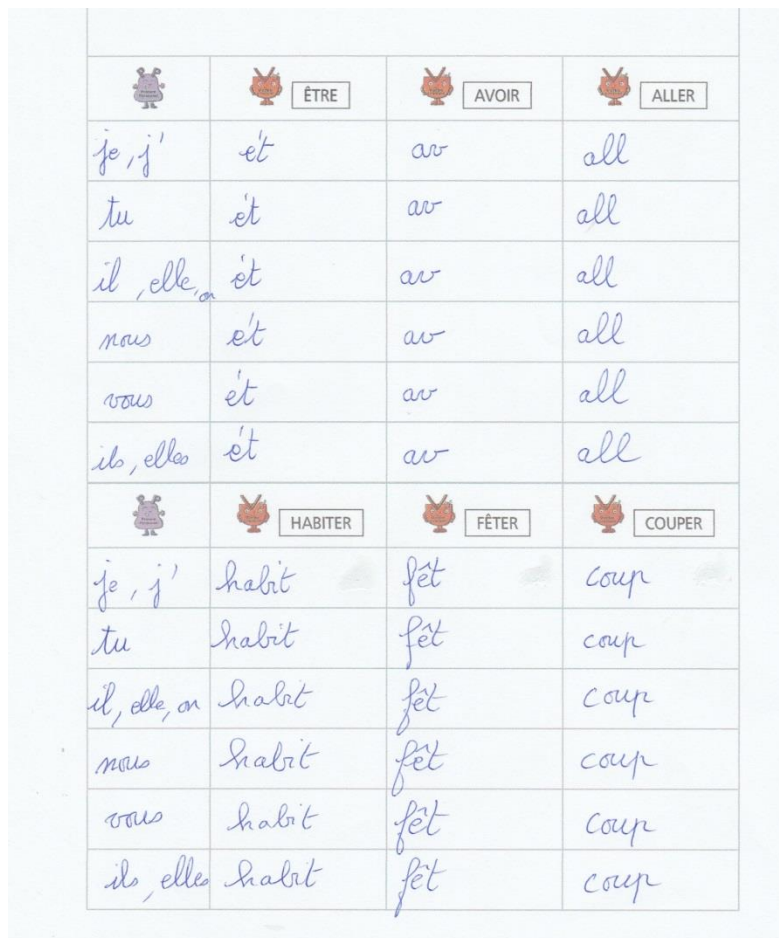 ÊTRE AVOIR ALLER
je, j' ét av all
tu ét av all
il, elle, on ét av all
nous ét av all
vous ét av all
ils, elles ét av all
HABITER FÊTER COUPER
je, j' habit fêt coup
tu habit fêt coup
il, elle, on habit fêt coup
nous habit fêt coup
vous habit fêt coup
ils, elles habit fêt coup